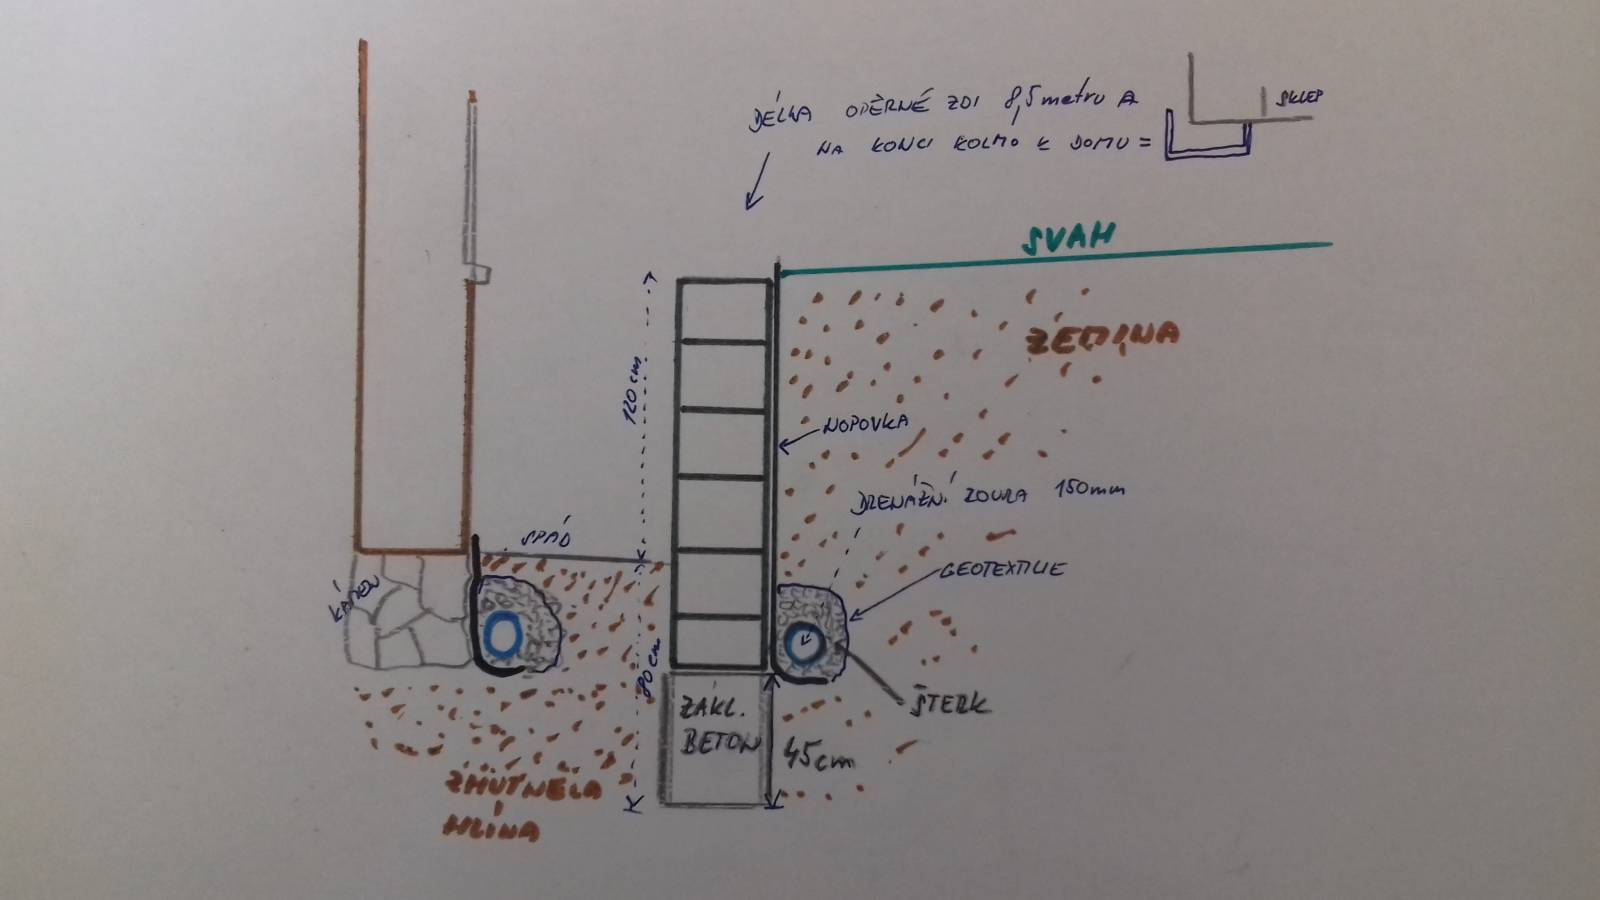 DÉLKA OPĚRNÉ ZDI 8,5 metru A
NA KONCI KOLMO K DOMU =
SKLEP
SVAH
ZEMINA
120 cm
NOPOVKA
DRENÁŽNÍ ROURA 150mm
SPÁD
GEOTEXTILIE
KÁMEN
80 cm
ŠTERK
ZÁKL.
BETON
45cm
ZHUTNĚLA
HLÍNA